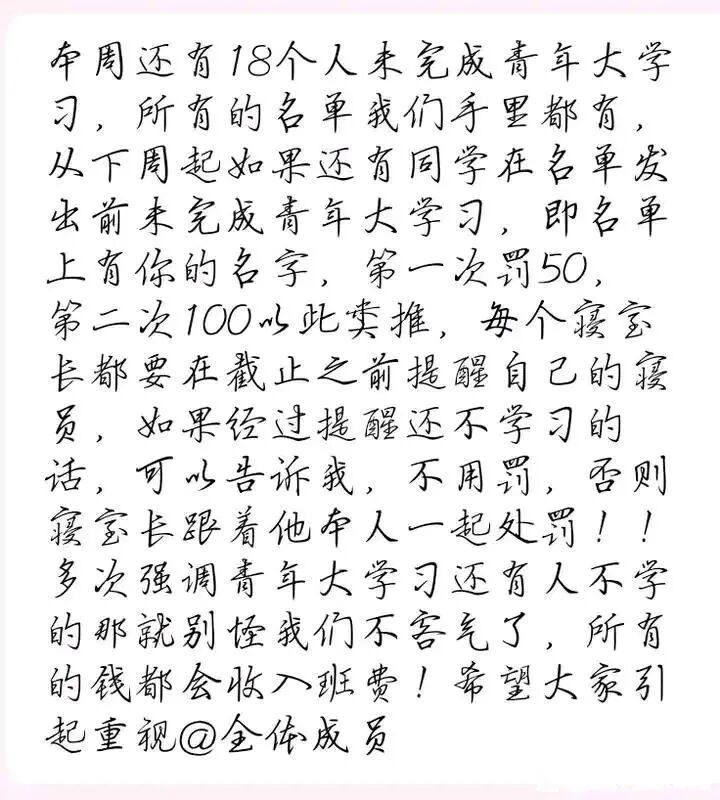 本周还有18个人未完成青年大学
习，所有的名单我们手里都有，
从下周起如果还有同学在名单发
出前未完成青年大学习，即名单
上有你的名字，第一次罚50，
第二次100以此类推，每个寝室
长都要在截止之前提醒自己的寝
员，如果经过提醒还不学习的
话，可以告诉我，不用罚，否则
寝室长跟着他本人一起处罚！！
多次强调青年大学习还有人不学
的那就别怪我们不客气了，所有
的钱都会收入班费！希望大家引
起重视@全体成员